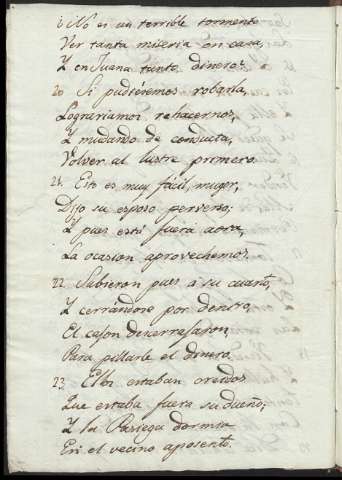 ¿No es un terrible tormento
Ver tanta miseria en casa,
Y en Juana tanto dinero?
20 Si pudiéremos robarla,
Lograriamos rehacernos,
Y mudando de conducta,
Volver al lustre primero.
21. Esto es muy fácil, muger,
Dijo su esposo perverso;
Y pues está fuera aora,
La ocasion aprovechemos.
22. Subieron pues a su cuarto,
Y cerrándose por dentro,
El cajon descerrajaron,
Para pillarle el dinero.
23. Ellos estaban creidos
Que estaba fuera su dueño;
Y la Pasiega dormia
En el vecino aposento.